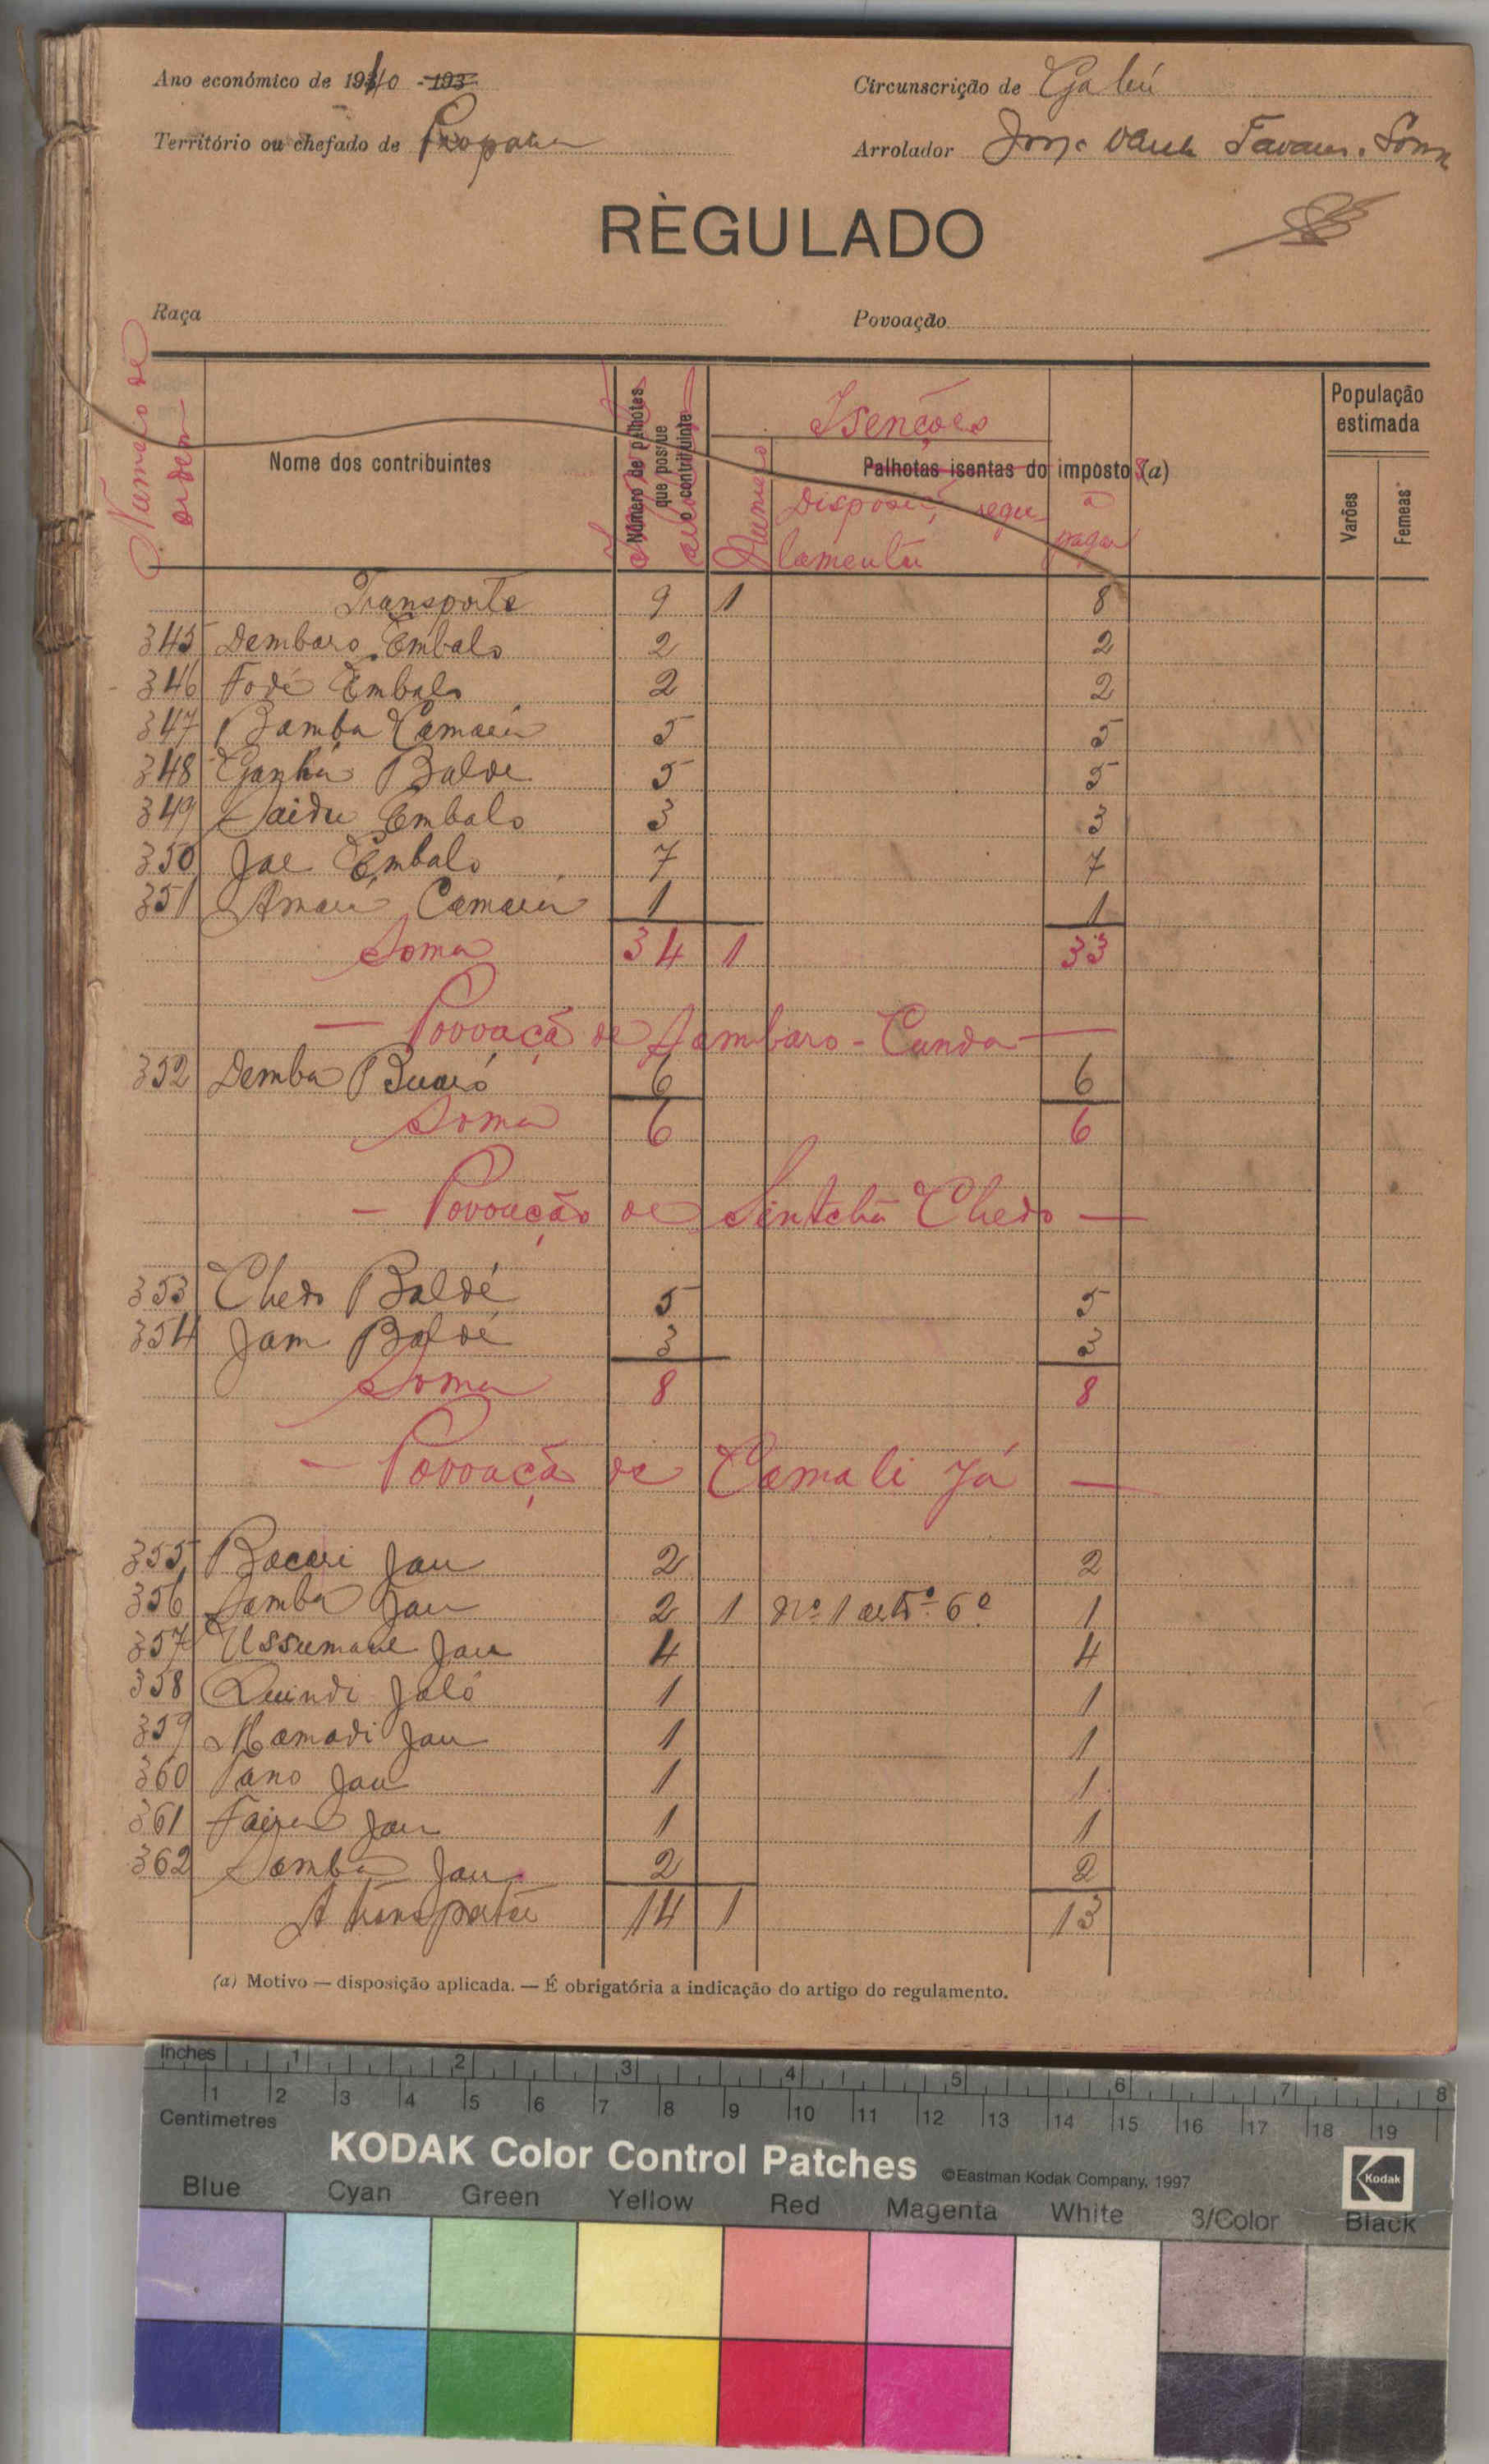 Ano económico de 1940 -193
Circunscrição de Gabú
Território ou chefado de Propana
Arrolador Tavares
RÈGULADO
Raça
Povoação
Número de ordem
Nome dos contribuintes
Número de palhotes que possue o contribuinte
Isenções
Palhotas isentas do imposto (a)
Número
Disposiç. regulamentar
a pagar
População estimada
Varões
Femeas
Transporte 9 1 8
345 Dembaro Embalo 2 2
346 Fodé Embalo 2 2
347 Bamba Camará 5 5
348 Ganha Balde 5 5
349 Saidu Embalo 3 3
350 Jae Embalo 7 7
351 Amari Camará 1 1
Soma 34 1 33
— Povoaçã de Sambaro - Cunda —
352 Demba Buaró 6 6
Soma 6 6
— Povoação de Sintchã Chedo —
353 Chedo Baldé 5 5
354 Jam Baldé 3 3
Soma 8 8
— Povoaçã de Camali Já —
355 Bacari Jau 2 2
356 Samba Jau 2 1 Nº 1 artº. 6º 1
357 Ussumane Jau 4 4
358 Quindi Jaló 1 1
359 Mamadi Jau 1 1
360 Pano Jau 1 1
361 Jau 1 1
362 Samba Jau 2 2
A transportar 14 1 13
(a) Motivo — disposição aplicada. — É obrigatória a indicação do artigo do regulamento.
Inches 1 2 3 4 5 6 7 8
1 2 3 4 5 6 7 8 9 10 11 12 13 14 15 16 17 18 19
Centimetres
KODAK Color Control Patches ©Eastman Kodak Company, 1997 Kodak
Blue Cyan Green Yellow Red Magenta White 3/Color Black